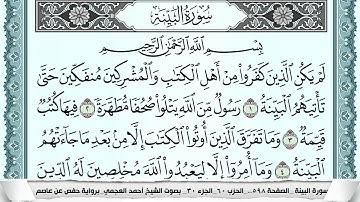 سُورَةُ الْبَيِّنَةِ
بِسْمِ اللَّهِ الرَّحْمَٰنِ الرَّحِيمِ
لَمْ يَكُنِ الَّذِينَ كَفَرُوا مِنْ أَهْلِ الْكِتَابِ وَالْمُشْرِكِينَ مُنفَكِّينَ حَتَّىٰ
تَأْتِيَهُمُ الْبَيِّنَةُ ١ رَسُولٌ مِّنَ اللَّهِ يَتْلُو صُحُفًا مُّطَهَّرَةً ٢ فِيهَا كُتُبٌ
قَيِّمَةٌ ٣ وَمَا تَفَرَّقَ الَّذِينَ أُوتُوا الْكِتَابَ إِلَّا مِن بَعْدِ مَا جَاءَتْهُمُ
الْبَيِّنَةُ ٤ وَمَا أُمِرُوا إِلَّا لِيَعْبُدُوا اللَّهَ مُخْلِصِينَ لَهُ الدِّينَ
سورة البينة ..الصفحة ٥٩٨.. الحزب ٦٠..الجزء ٣٠.. بصوت الشيخ أحمد العجمي.. برواية حفص عن عاصم